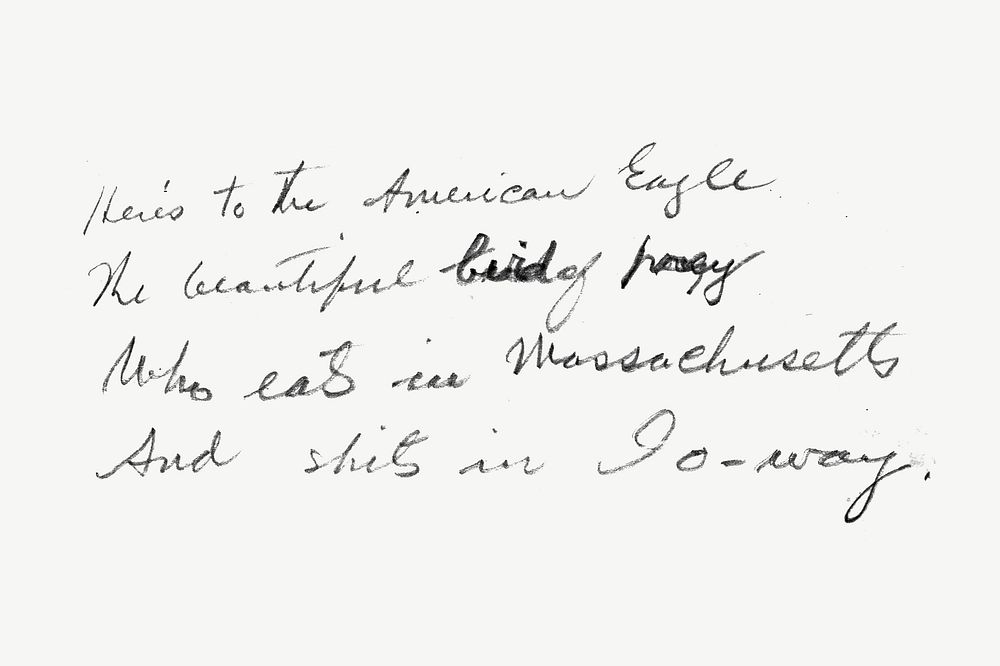 Here's to the American Eagle
The beautiful bird of prey
Who eats in Massachusetts
And shits in Io-way.